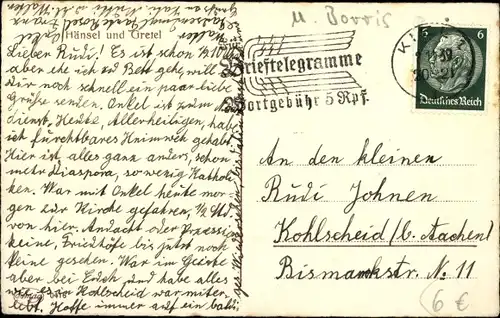 Hänsel und Gretel
Lieber Rudi! Es ist schon ½10 Uhr
aber ehe ich zu Bett gehe, will ich
Dir nur noch schnell ein paar liebe
Grüße senden. Onkel ist zum
dienst, Heute, Allerheiligen, hab
ich furchtbares Heimweh gehabt.
Hier ist, alles ganz anders, schon
mehr Diaspora, so wenig Katho-
liken. War mit Onkel heute mor-
gen zur Kirche gefahren, ½ Std.
von hier. Andacht oder Prozession
keine, Friedhöfe bis jetzt noch
keine gesehen. War im Geiste
aber bei Euch und habe alles
wie es in Kohlscheid war miter-
lebt. Hoffe immer auf ein bal-
Brieftelegramme
Wortgebühr 5 Rpf.
6 6
Deutsches Reich
M. Borris
An den kleinen
Rudi Johnen
Kohlscheid (b. Aachen)
Bismarckstr. No. 11
6 €